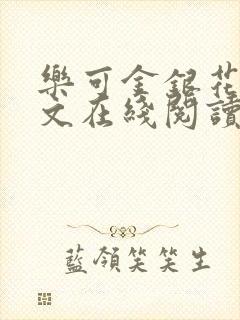 樂可金銀花
文在綫閱讀
藍領笑笑生